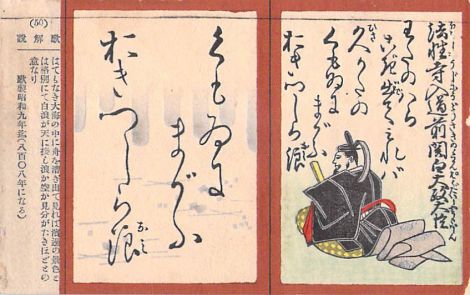 法性寺入道前関白太政大臣
わたのはら
こぎ出てみれば
久かたの
くもゐに
まがふ
おきつしら浪
くもゐに
まがふ
おきつしら浪
(50)
歌解説
はてもなき大海の中に舟を漕ぎ出て見れば海邊の景色と
は格別にて白浪が天に接し浪か空か見分がたきほどとの
意なり
歌製昭和九年迄(八百〇八年になる)